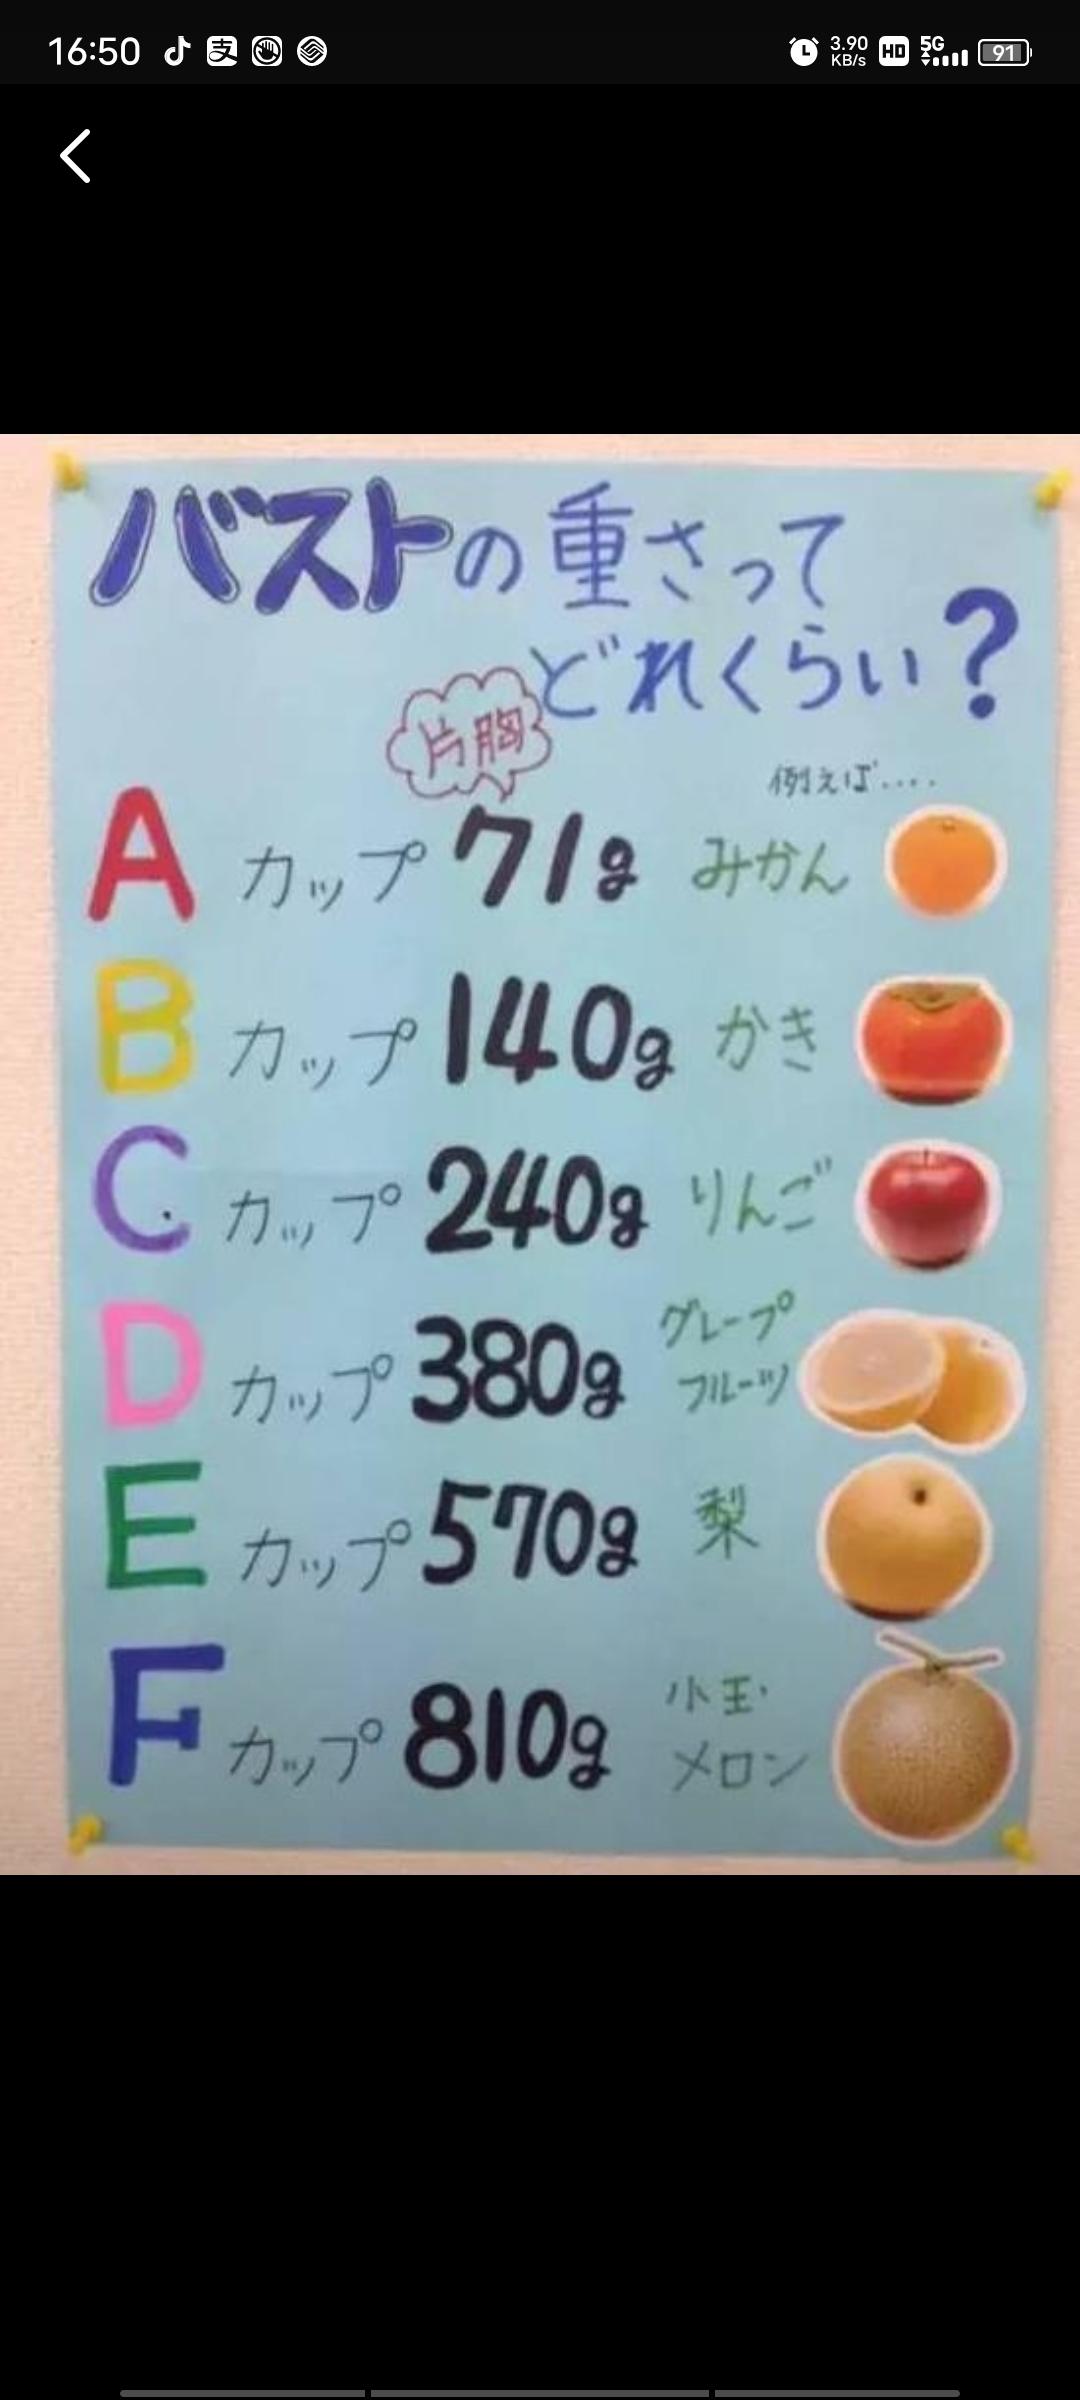 16:50
支
3.90
KB/s
HD
5G
91
バストの重さって
どれくらい?
片胸
例えば....
A カップ 71g みかん
B カップ 140g かき
C カップ 240g りんご
D カップ 380g グレープ
フルーツ
E カップ 570g 梨
F カップ 810g 小玉
メロン